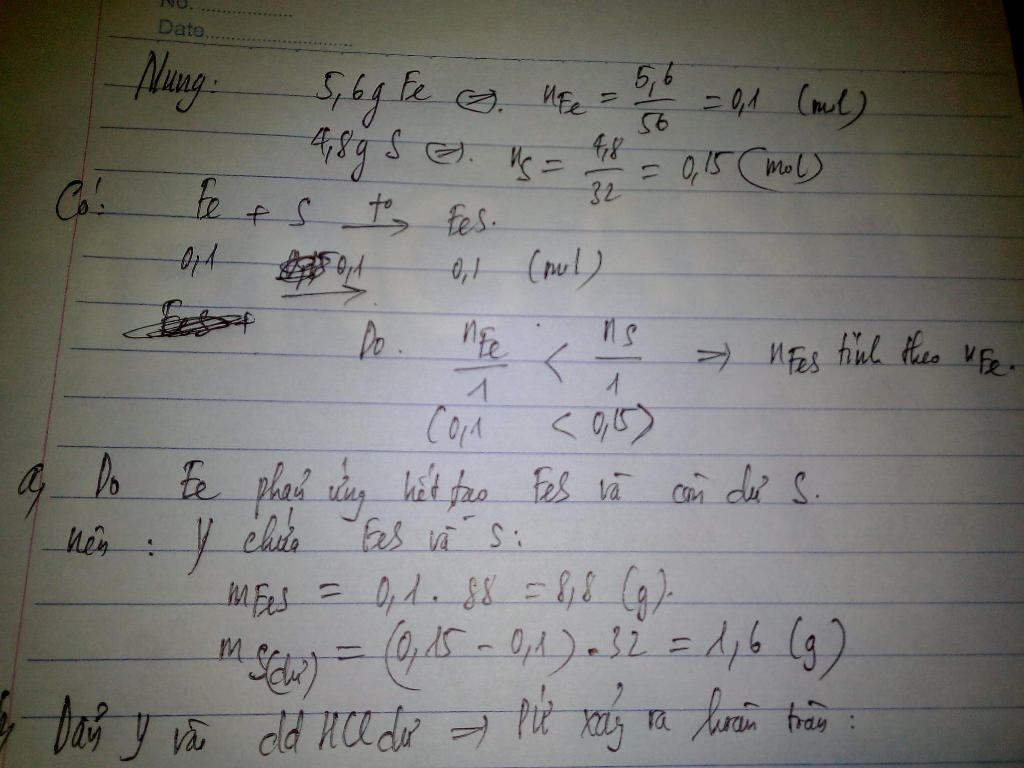 No. ..................
Date..............................
Nung: 5,6g Fe ⇒. nFe = 5,6/56 = 0,1 (mol)
4,8g S ⇒. nS = 4,8/32 = 0,15 (mol)
Có: Fe + S t° → FeS.
0,1 0,1 0,1 (mol)
→
Do. nFe/1 < nS/1 ⇒ nFeS tính theo nFe.
(0,1 < 0,15)
a, Do Fe phản ứng hết tạo FeS và còn dư S.
nên : Y chứa FeS và S:
mFeS = 0,1 . 88 = 8,8 (g).
mS(dư) = (0,15 - 0,1) . 32 = 1,6 (g)
Dẫn Y vào dd HCl dư ⇒ PƯ xảy ra hoàn toàn :